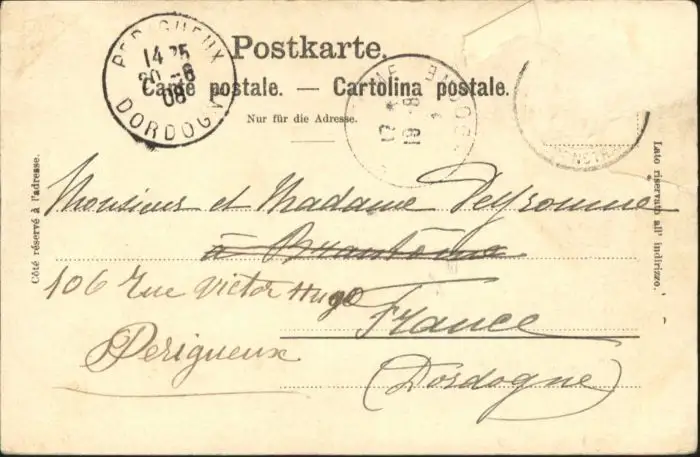 Postkarte.
Carte postale. — Cartolina postale.
Nur für die Adresse.
PERIGUEUX
14 25
20 -8
08
DORDOGNE
19 -8
Côté réservé à l'adresse.
Lato riservato all' indirizzo.
Monsieur et Madame Peyronne
à Brantôme
106 Rue Victor Hugo
France
Perigueux
(Dordogne)